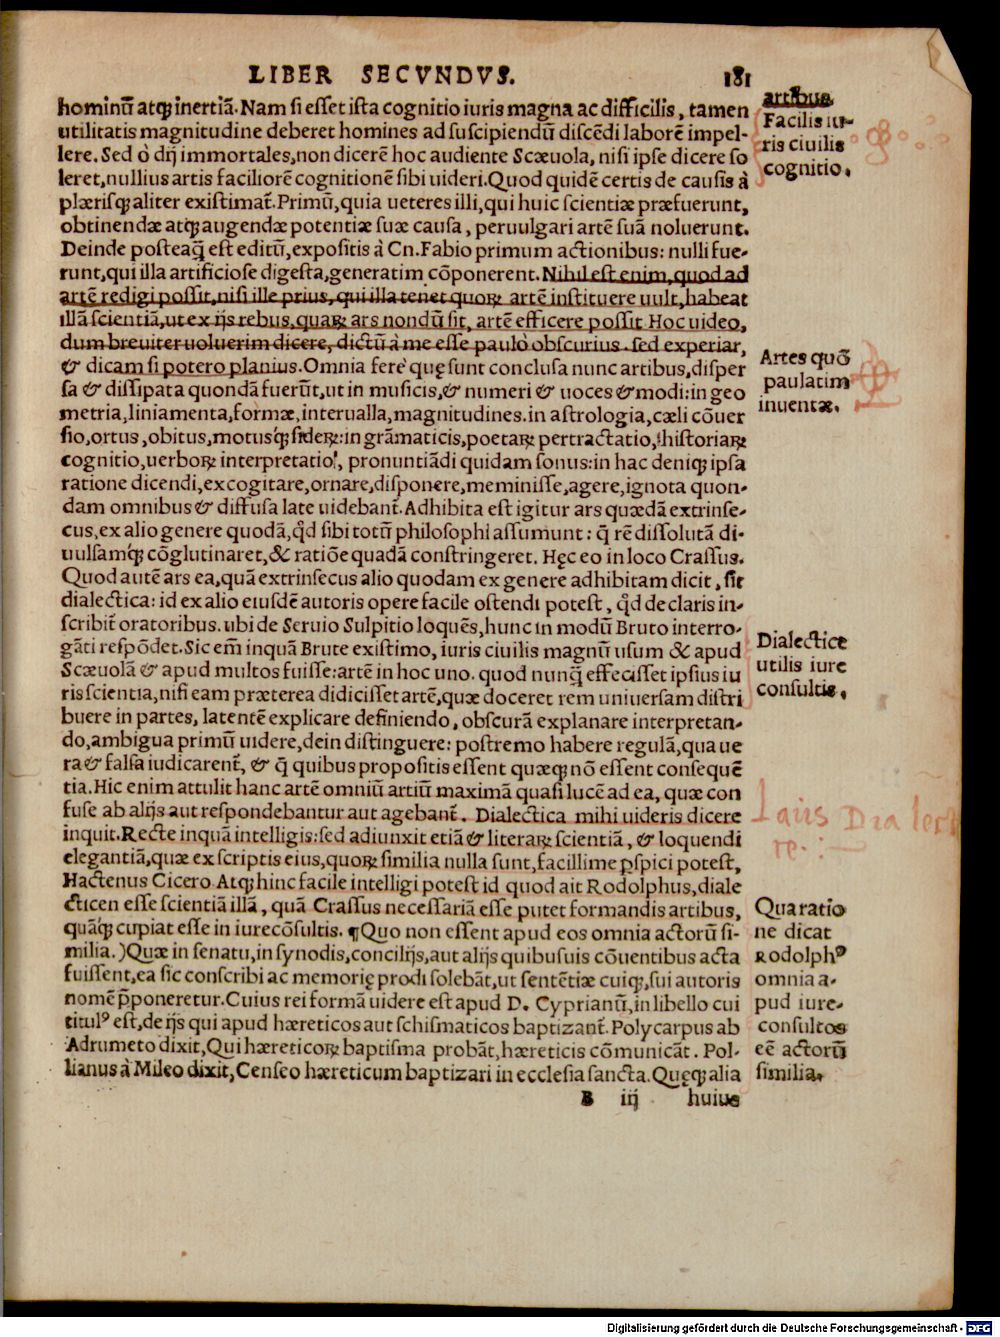 LIBER SECVNDVS. 181
hominū atq; inertiā. Nam si esset ista cognitio iuris magna ac difficilis, tamen
utilitatis magnitudine deberet homines ad suscipiendū discēdi laborē impel-
lere. Sed ò dij immortales, non dicerē hoc audiente Scæuola, nisi ipse dicere so
leret, nullius artis faciliorē cognitionē sibi uideri. Quod quidē certis de causis à
plærisq; aliter existimat̄. Primū, quia ueteres illi, qui huic scientiæ præfuerunt,
obtinendæ atq; augendæ potentiæ suæ causa, peruulgari artē suā noluerunt.
Deinde posteaq̄ est editū, expositis à Cn. Fabio primum actionibus: nulli fue-
runt, qui illa artificiose digesta, generatim cōponerent. Nihil est enim, quod ad
artē redigi possit, nisi ille prius, qui illa tenet quoꝝ artē instituere uult, habeat
illā scientiā, ut ex ijs rebus, quaꝝ ars nondū sit, artē efficere possit. Hoc uideo,
dum breuiter uoluerim dicere, dictū à me esse paulò obscurius. sed experiar,
& dicam si potero planius. Omnia ferè quę sunt conclusa nunc artibus, disper
sa & dissipata quondā fuerūt, ut in musicis, & numeri & uoces & modi: in geo
metria, liniamenta, formæ, interualla, magnitudines. in astrologia, cæli cōuer
sio, ortus, obitus, motusq́; sideꝝ: in grāmaticis, poetaꝝ pertractatio, historiaꝝ
cognitio, uerboꝝ interpretatio, pronuntiādi quidam sonus: in hac deniq; ipsa
ratione dicendi, excogitare, ornare, disponere, meminisse, agere, ignota quon-
dam omnibus & diffusa late uidebant̄. Adhibita est igitur ars quædā extrinse-
cus, ex alio genere quodā, qd̄ sibi totū philosophi assumunt: q̄ rē dissolutā di-
uulsamq́; cōglutinaret, & ratiōe quadā constringeret. Hęc eo in loco Crassus.
Quod autē ars ea, quā extrinsecus alio quodam ex genere adhibitam dicit, sit
dialectica: id ex alio eiusdē autoris opere facile ostendi potest, qd̄ de claris in-
scribit̄ oratoribus. ubi de Seruio Sulpitio loquēs, hunc in modū Bruto interro-
gāti respōdet. Sic em̄ inquā Brute existimo, iuris ciuilis magnū usum & apud
Scæuolā & apud multos fuisse: artē in hoc uno. quod nunq̄ effecisset ipsius iu
ris scientia, nisi eam præterea didicisset artē, quæ doceret rem uniuersam distri
buere in partes, latentē explicare definiendo, obscurā explanare interpretan-
do, ambigua primū uidere, dein distinguere: postremo habere regulā, qua ue
ra & falsa iudicarent̄, & q̄ quibus propositis essent quæq; nō essent consequē
tia. Hic enim attulit hanc artē omniū artiū maximā quasi lucē ad ea, quæ con
fuse ab alijs aut respondebantur aut agebant̄. Dialectica mihi uideris dicere
inquit. Recte inquā intelligis: sed adiunxit etiā & literaꝝ scientiā, & loquendi
elegantiā, quæ ex scriptis eius, quoꝝ similia nulla sunt, facillime ꝑspici potest,
Hactenus Cicero. Atq; hinc facile intelligi potest id quod ait Rodolphus, diale
cticen esse scientiā illā, quā Crassus necessariā esse putet formandis artibus,
quāq́; cupiat esse in iurecōsultis. ¶ Quo non essent apud eos omnia actorū si-
milia.) Quæ in senatu, in synodis, concilijs, aut alijs quibusuis cōuentibus acta
fuissent, ea sic conscribi ac memorię prodi solebāt, ut sentētiæ cuiq; sui autoris
nomē p̄poneretur. Cuius rei formā uidere est apud D. Cyprianū, in libello cui
titulꝰ est, de ijs qui apud hæreticos aut schismaticos baptizant̄. Polycarpus ab
Adrumeto dixit, Qui hæreticoꝝ baptisma probāt, hæreticis cōmunicāt. Pol-
lianus à Mileo dixit, Censeo hæreticum baptizari in ecclesia sancta. Quęq; alia
B iij huius
artibus
Facilis iu-
ris ciuilis
cognitio.
Artes quō
paulatim
inuentæ.
Dialectice
utilis iure
consultis.
Laus Dialecti
ce
Qua ratio
ne dicat
Rodolphꝰ
omnia a-
pud iure-
consultos
eē actorū
similia.
Digitalisierung gefördert durch die Deutsche Forschungsgemeinschaft - DFG